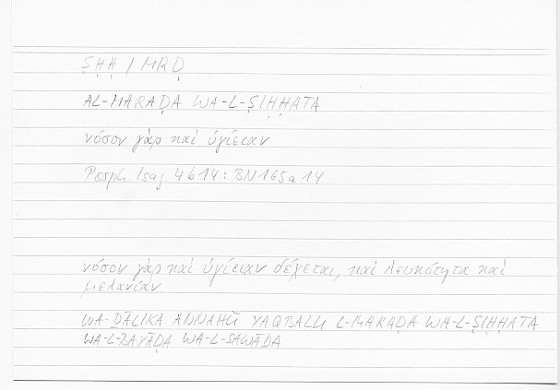 ṢḤḤ / MRḌ
AL-MARAḌA WA-L-ṢIḤḤATA
νόσον γὰρ καὶ ὑγίειαν
Porph. Isag. 4b14: BN165a14
νόσον γὰρ καὶ ὑγίειαν δέχεται, καὶ λευκότητα καὶ
μελανίαν
WA-ḎĀLIKA ANNAHŪ YAQBALU L-MARAḌA WA-L-ṢIḤḤATA
WA-L-BAYĀḌA WA-L-SAWĀDA